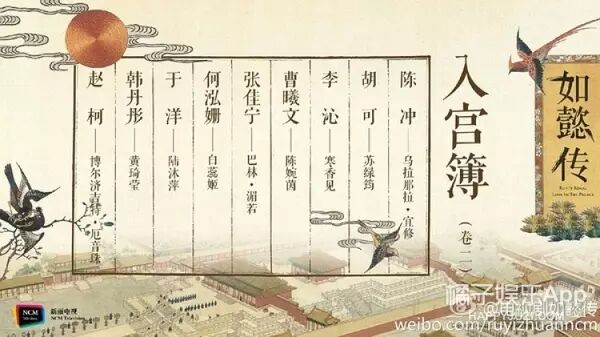 如懿传
RUYI'S ROYAL
LOVE IN THE PALACE
入宫簿
(卷二)
陈冲——乌拉那拉·宜修
胡可——苏绿筠
李沁——寒香见
曹曦文——陈婉茵
张佳宁——巴林·湄若
何泓姗——白蕊姬
于洋——陆沐萍
韩丹彤——黄琦莹
赵柯——博尔济吉特·厄音珠
NCM
新丽电视
NCM Television
橘子娱乐App
HAPPYJUZI.COM
weibo.com/ruyizhuanncm